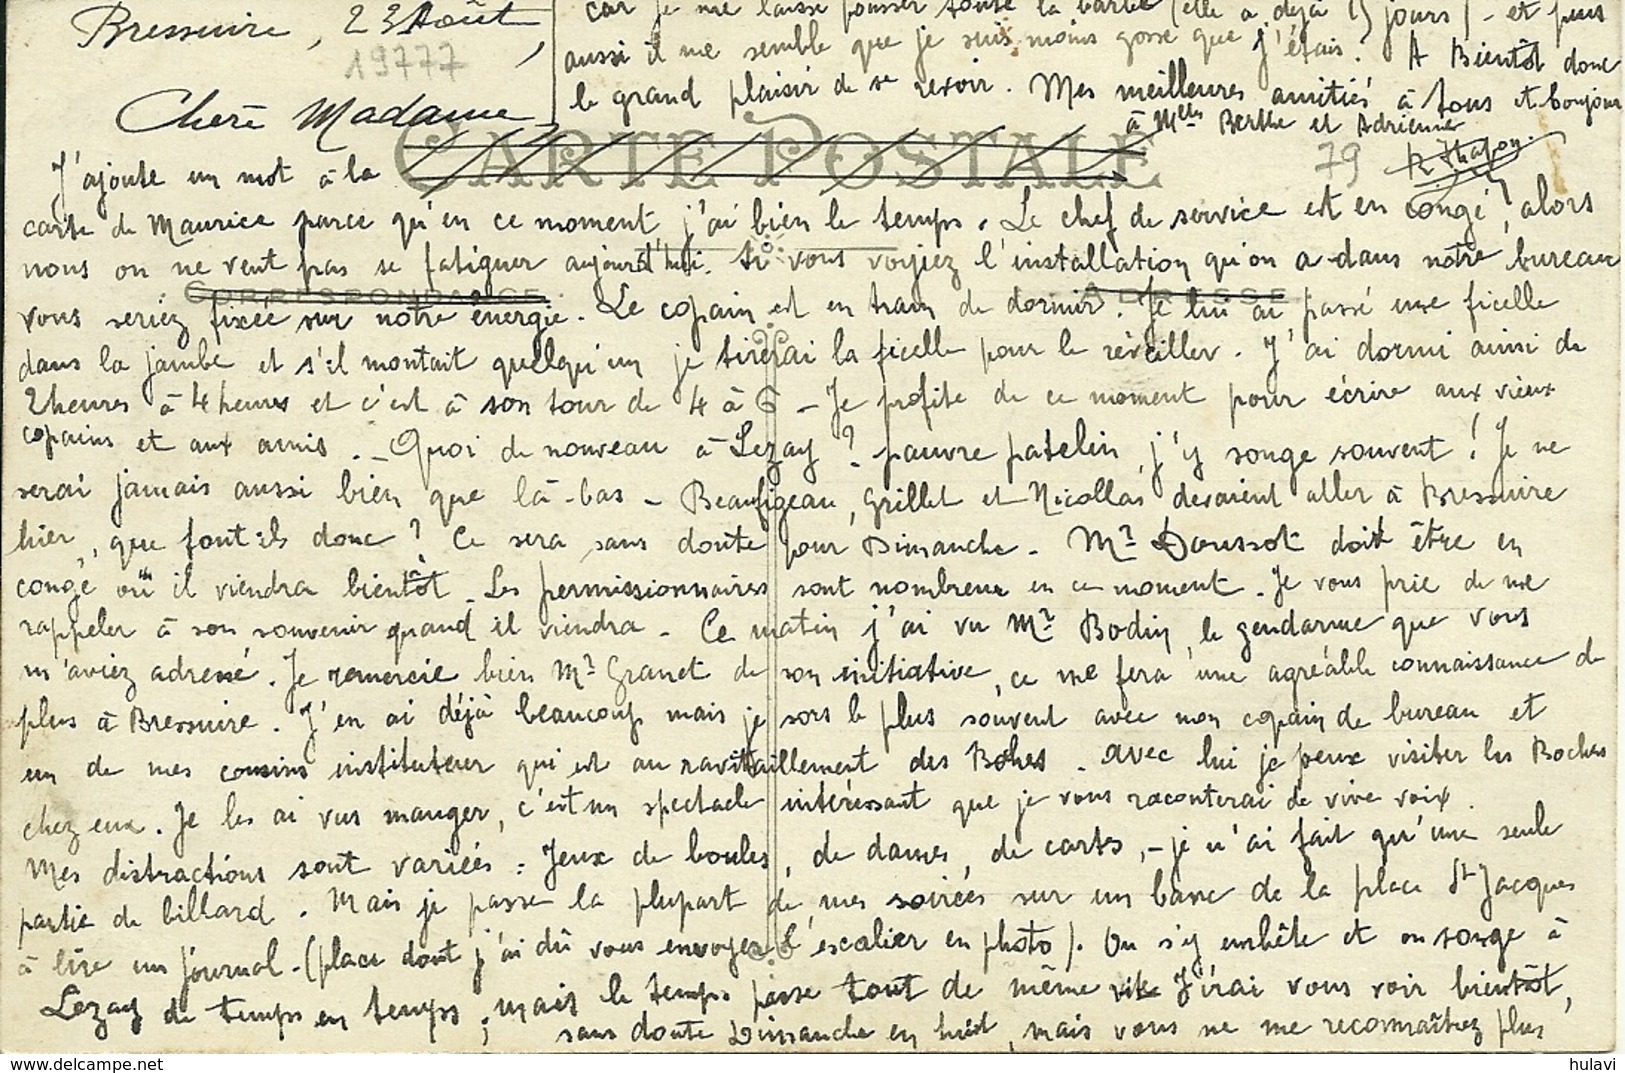 Bressuire, 23 Août
19777
Chère Madame,
CARTE POSTALE
CORRESPONDANCE
ADRESSE
J'ajoute un mot à la
carte de Maurice parce qu'en ce moment j'ai bien le temps. Le chef de service est en congé, alors
nous on ne veut pas se fatiguer aujourd'hui. Si vous voyiez l'installation qu'on a dans notre bureau
vous seriez fixée sur notre énergie. Le copain est en train de dormir. Je lui ai passé une ficelle
dans la jambe et s'il montait quelqu'un je tirerai la ficelle pour le réveiller. J'ai dormi ainsi de
2 heures à 4 heures et c'est à son tour de 4 à 6 - Je profite de ce moment pour écrire aux vieux
copains et aux amis. - Quoi de nouveau à Lezay ? pauvre patelin, j'y songe souvent ! Je ne
serai jamais aussi bien que là-bas - Beaufigeau, Grillet et Nicollas devaient aller à Bressuire
hier, que font-ils donc ? Ce sera sans doute pour Dimanche - Mr Doussot doit être en
congé où il viendra bientôt. Les permissionnaires sont nombreux en ce moment. Je vous prie de me
rappeler à son souvenir quand il viendra - Ce matin j'ai vu Mr Bodin, le gendarme que vous
m'aviez adressé. Je remercie bien Mr Granet de son initiative, ce me fera une agréable connaissance de
plus à Bressuire. J'en ai déjà beaucoup mais je sors le plus souvent avec mon copain de bureau et
un de mes cousins instituteur qui est au ravitaillement des Boches. Avec lui je peux visiter les Boches
chez eux. Je les ai vus manger, c'est un spectacle intéressant que je vous raconterai de vive voix.
Mes distractions sont variées : Jeux de boules, de dames, de cartes, - je n'ai fait qu'une seule
partie de billard. Mais je passe la plupart de mes soirées sur un banc de la place St Jacques
à lire un journal - (place dont j'ai dû vous envoyer l'escalier en photo). On s'y embête et on songe à
Lezay de temps en temps ; mais le temps passe tout de même vite J'irai vous voir bientôt,
sans doute Dimanche en huit, mais vous ne me reconnaîtrez plus
car je me laisse pousser toute la barbe (elle a déjà 15 jours) - et puis
aussi il me semble que je suis moins gosse que j'étais. A Bientôt donc
le grand plaisir de se revoir. Mes meilleures amitiés à tous et bonjour
à Melles Berthe et Adrienne
79
hulavi